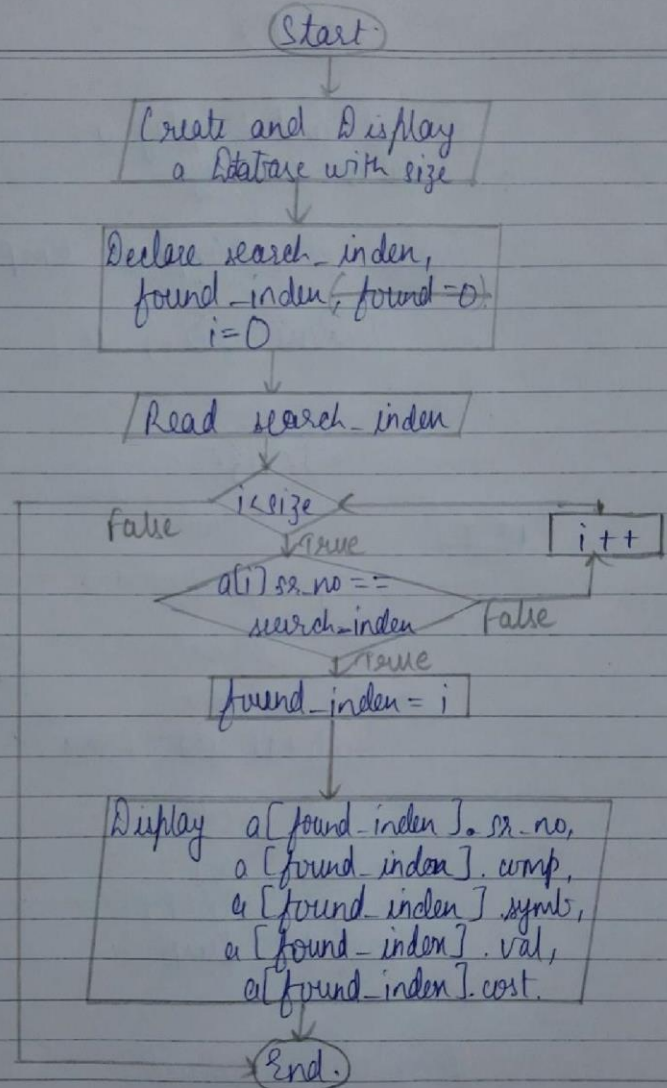 Start.
Create and Display
a Database with size
Declare search_index,
found_index, found=0
i=0
Read search_index
i<size
False
True
i++
a[i] sr_no ==
search_index
False
True
found_index = i
Display a[found_index].sr_no,
a[found_index].comp,
a[found_index].symb,
a[found_index].val,
a[found_index].cost.
End.